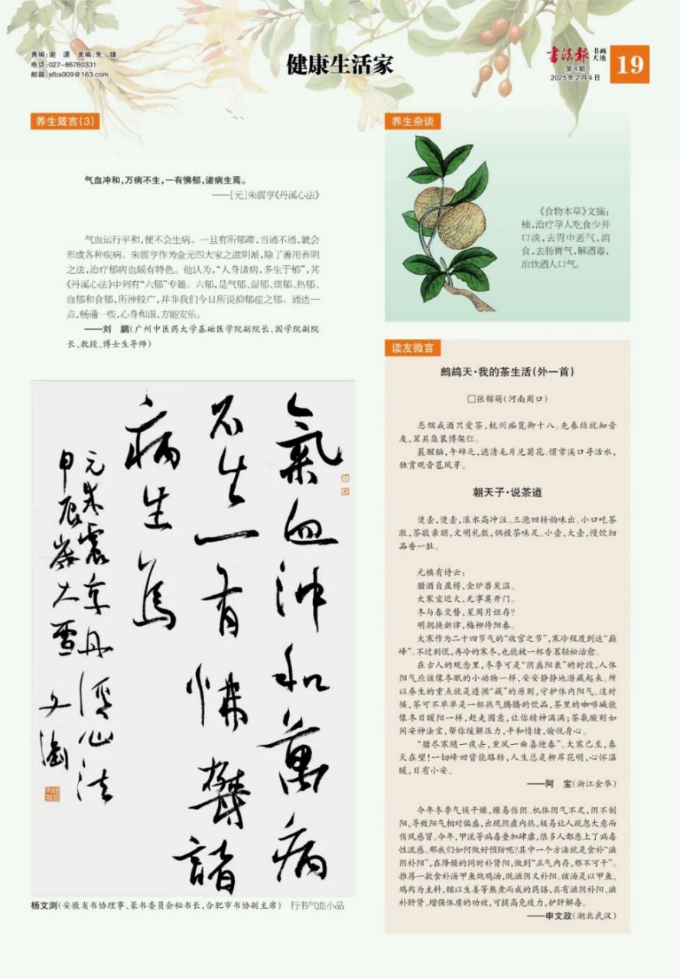 责编：谢 漾 美编：朱 婕
电话：027-86780331
邮箱：sfbs009@163.com
健康生活家
书法报
书画
天地
第4期
2025年2月4日
19
养生箴言(3)
气血冲和，万病不生，一有怫郁，诸病生焉。
——[元]朱震亨《丹溪心法》
气血运行平和，便不会生病。一旦有所郁滞，当通不通，就会
形成各种疾病。朱震亨作为金元四大家之滋阴派，除了善用养阴
之法，治疗郁病也颇有特色。他认为，“人身诸病，多生于郁”，其
《丹溪心法》中列有“六郁”专篇。六郁，是气郁、湿郁、痰郁、热郁、
血郁和食郁，所涉较广，并非我们今日所说抑郁症之郁。通达一
点，畅通一些，心身和谐，方能安乐。
——刘 鹏(广州中医药大学基础医学院副院长、国学院副院
长、教授、博士生导师)
氣血沖和萬病
不生一有怫鬱諸
病生焉
元朱震亨丹溪心法
甲辰歲大雪
文浏
杨文浏(安徽省书协理事、篆书委员会秘书长，合肥市书协副主席) 行书气血小品
养生杂谈
《食物本草》文摘：
柚，治疗孕人吃食少并
口淡，去胃中恶气，消
食，去肠胃气，解酒毒，
治饮酒人口气。
读友微言
鹧鸪天·我的茶生活(外一首)
□张锦萌(河南周口)
忌烟戒酒只爱茶，杭州临览御十八。先春结就知音
友，茗具集装博架仨。
晨醒脑，午辞乏，滤清毛片兑菊花。惯常溪口寻活水，
独赏观音芭凤芽。
朝天子·说茶道
烫壶，烫壶，滚水高冲注。三泡四转韵味出。小口吃茶
漱，茶敬亲朋，文明礼数，俩投茶味足。小壶，大壶，慢饮细
品香一肚。
元稹有诗云：
腊酒自盈樽，金炉兽炭温。
大寒宜近火，无事莫开门。
冬与春交替，星周月讵存？
明朝换新律，梅柳待阳春。
大寒作为二十四节气的“收官之节”，寒冷程度到达“巅
峰”。不过别慌，再冷的寒冬，也能被一杯香茗轻松治愈。
在古人的观念里，冬季可是“阴盛阳衰”的时段，人体
阳气应该像冬眠的小动物一样，安安静静地潜藏起来。所
以养生的重点就是遵循“藏”的原则，守护体内阳气。这时
候，茶可不单单是一杯热气腾腾的饮品，茶里的咖啡碱能
像冬日暖阳一样，赶走困意，让你精神满满；茶氨酸则如
同安神法宝，帮你缓解压力，平和情绪，愉悦身心。
“腊尽寒随一夜去，东风一曲喜迎春”。大寒已至，春
天在望！一切峰回皆能路转，人生总是柳岸花明，心怀温
暖，日有小安。
——阿 宝(浙江金华)
今年冬季气候干燥，燥易伤阴。机体阴气不足，阴不制
阳，导致阳气相对偏盛，出现阴虚内热，极易让人疏忽大意而
伤风感冒。今年，甲流等病毒叠加肆虐，很多人都患上了病毒
性流感。那我们如何做好预防呢？其中一个方法就是食补“滋
阴补阳”，在降燥的同时补肾阳，做到“正气内存，邪不可干”。
推荐一款食补汤甲鱼炖鸡汤，既滋阴又补阳。该汤是以甲鱼、
鸡肉为主料，辅以生姜等熬煮而成的药膳，具有滋阴补阳、滋
补肝肾、增强体质的功效，可提高免疫力，护肝解毒。
——申文政(湖北武汉)